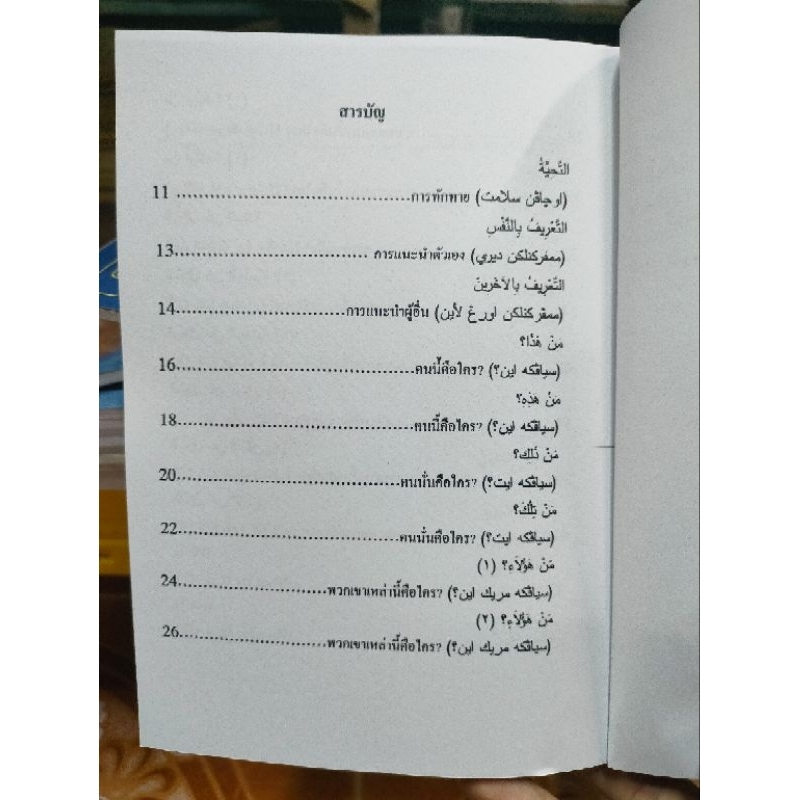 สารบัญ
التَّحِيَّةُ
(اوچاڤن سلامت) การทักทาย........................... 11
التَّعْرِيفُ بِالنَّفْسِ
(ممڤركنلكن ديري) การแนะนำตัวเอง ...........................13
التَّعْرِيفُ بِالآخَرِينَ
(ممڤركنلكن اورڠ لأين) การแนะนำผู้อื่น...........................14
مَنْ هَذَا؟
(سياڤكه اين؟) คนนี้คือใคร?...........................16
مَنْ هَذِهِ؟
(سياڤكه اين؟) คนนี้คือใคร?...........................18
مَنْ ذَلِكَ؟
(سياڤكه ايت؟) คนนั่นคือใคร?...........................20
مَنْ تِلْكَ؟
(سياڤكه ايت؟) คนนั่นคือใคร?...........................22
مَنْ هَؤُلَاءِ؟ (١)
(سياڤكه مريك اين؟) พวกเขาเหล่านี้คือใคร?...........................24
مَنْ هَؤُلَاءِ؟ (٢)
(سياڤكه مريك اين؟) พวกเขาเหล่านี้คือใคร?...........................26